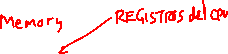 Memory
REGISTROS del CPU